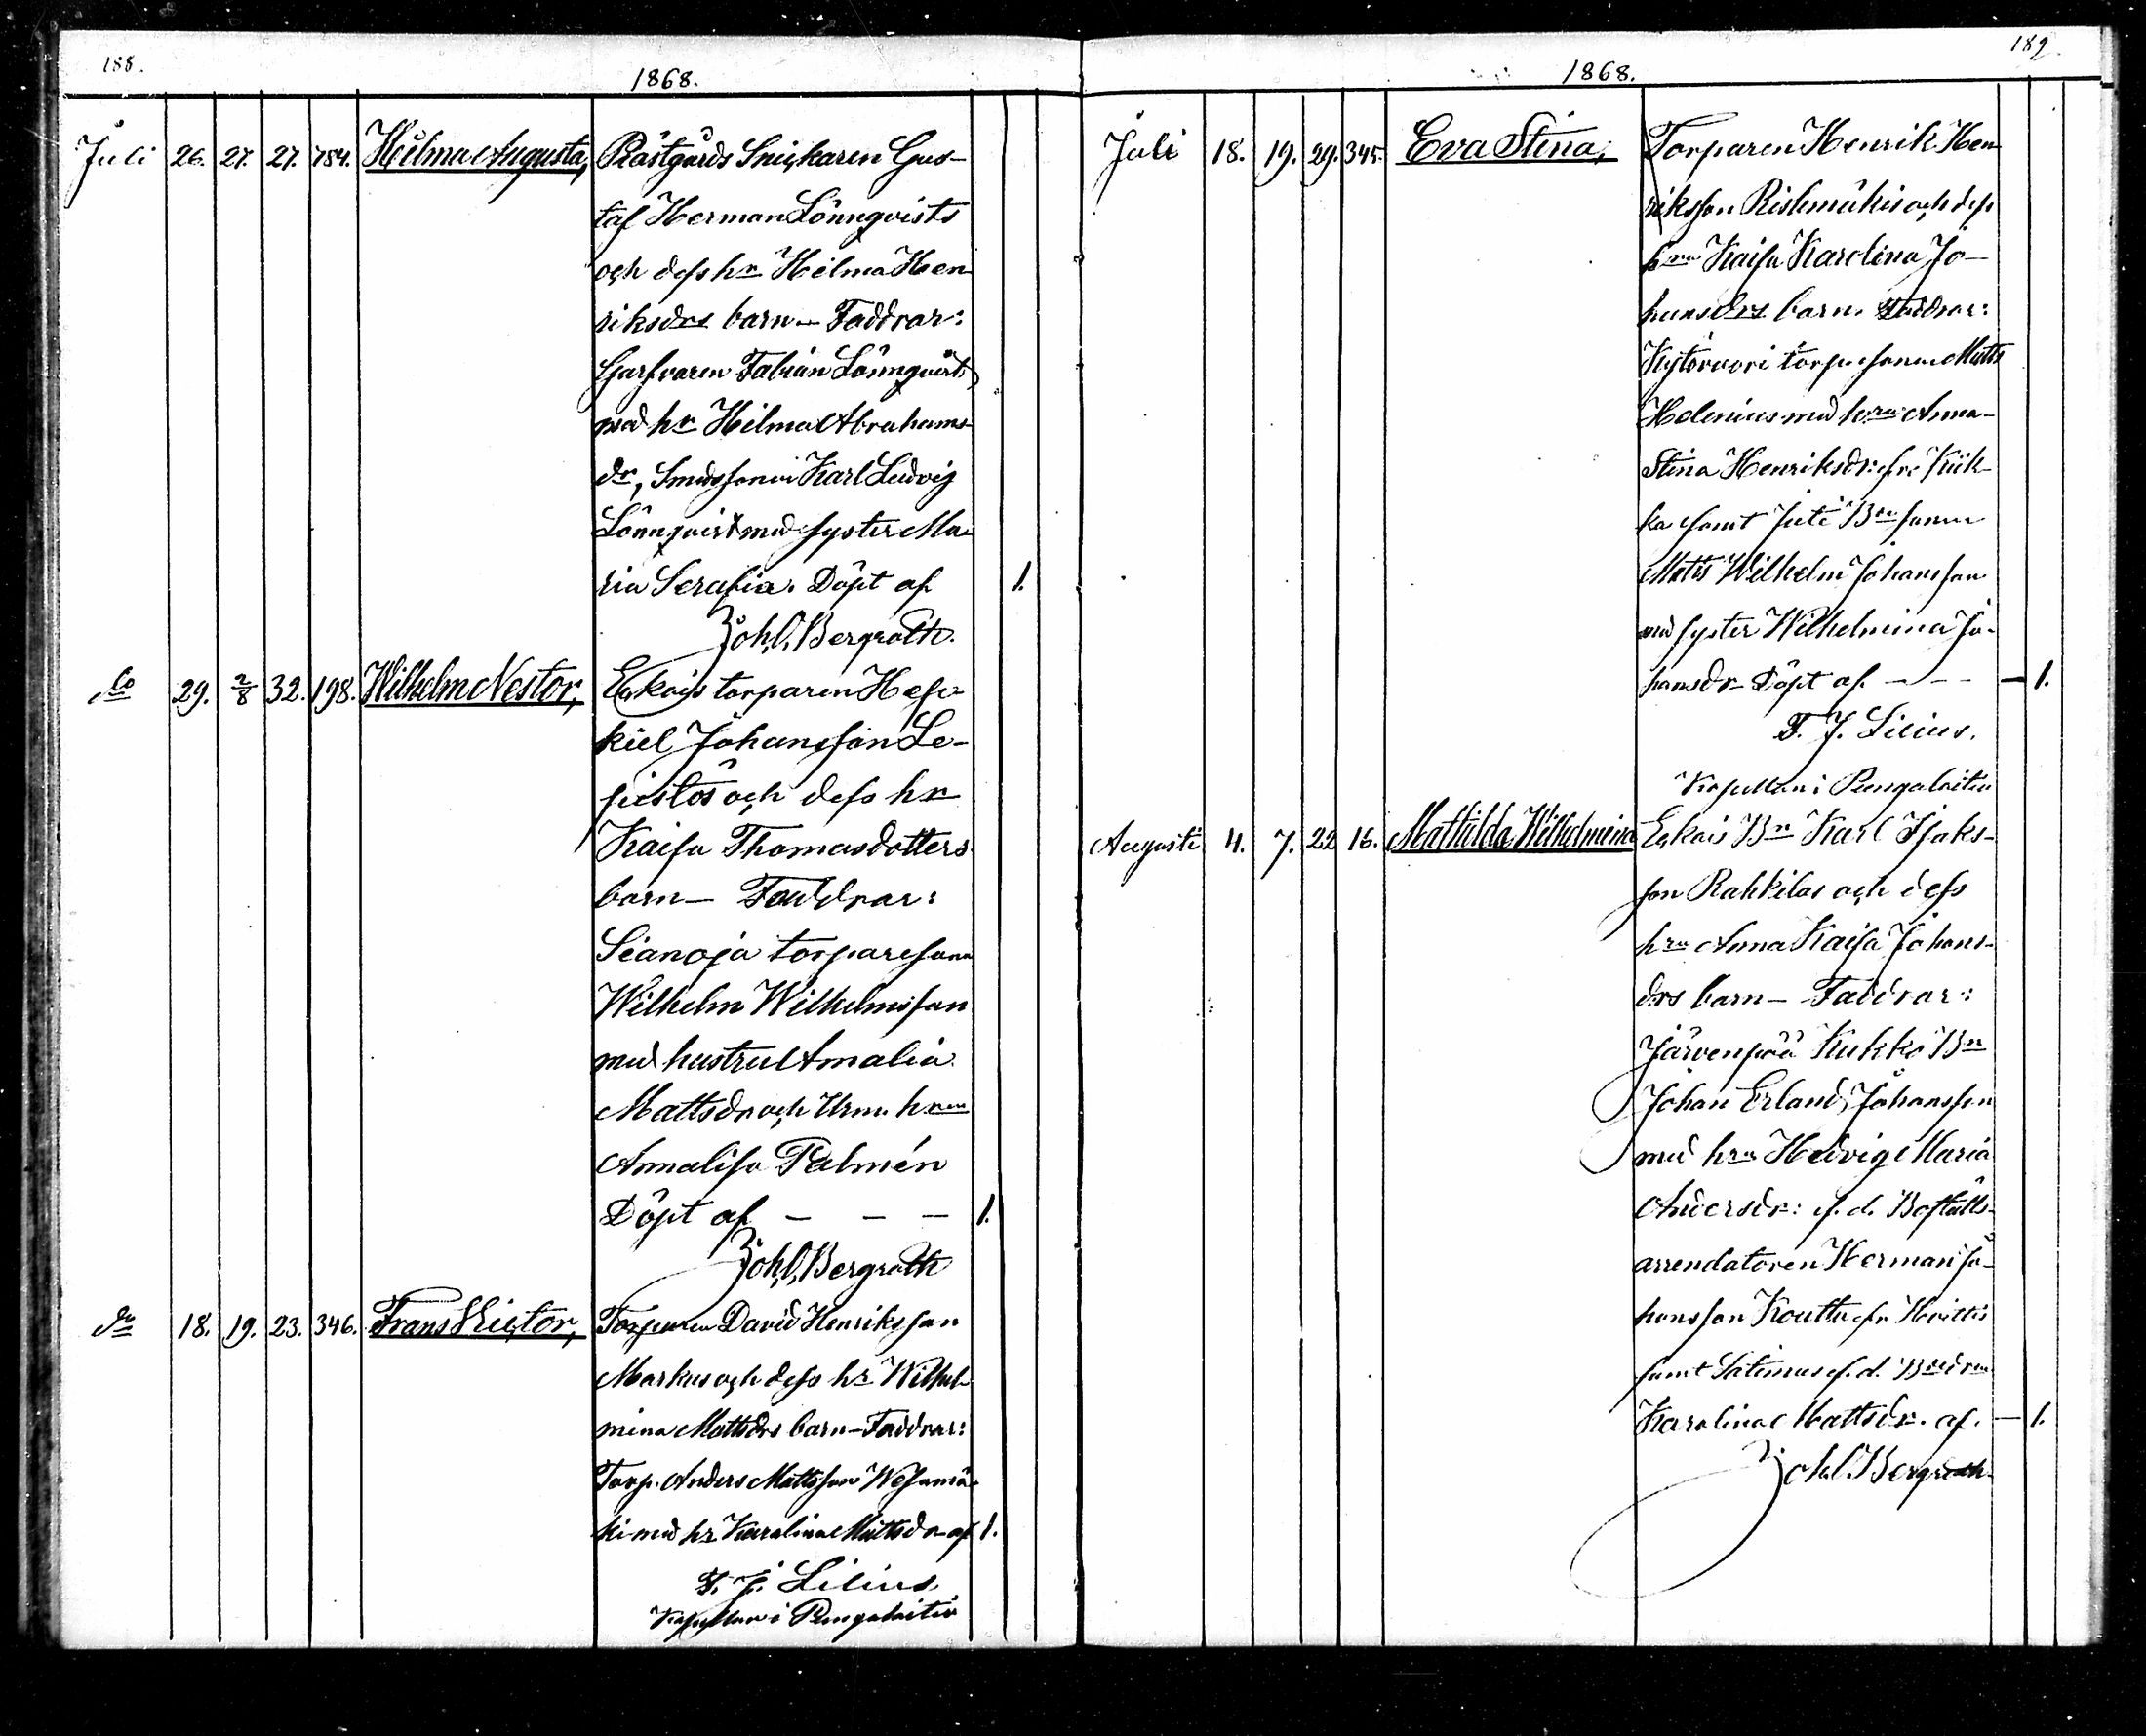 188.
1868.
Juli 26. 27. 27. 784. Hilma Augusta, Prästgårds Snickaren Gus-
taf Herman Lönnqvists
och dess hr Hilma Hen
riksdrs barn — Faddrar:
Garfvaren Fabian Lönnqvist
med hr Hilma Abrahams-
dr, Smedssonen Karl Ludvig
Lönnqvist med syster Ma-
ria Serafia. Döpt af 1.
Joh. O. Bergroth.
do 29. 2/8 32. 198. Wilhelm Nestor, Eskois torparen Hese-
kiel Johansson Le-
pistös och dess hr
Kaisa Thomasdotters
barn — Faddrar:
Sianoja torparesonen
Wilhelm Wilhelmsson
med hustru Amalia
Mattsdr och hrn
Annalisa Palmén
Döpt af — — — 1.
Joh. O. Bergroth
do 18. 19. 23. 346. Frans Victor, Torparen David Henriksson
Markus och dess hr Wilhel-
mina Mattsdrs barn — Faddrar:
Torp. Anders Mattsson Wesamä-
ki med hr Karolina Mattsdr af 1.
F. J. Lilius
Kapellan i Pungalaitio
189.
1868.
Juli 18. 19. 29. 345. Eva Stina, Torparen Henrik Hen-
riksson Ristimäkis och dess
hru Kaisa Karolina Jo-
hansdrs barn. Faddrar:
torparesonen Matts
Helenius med hru Anna-
Stina Henriksdr: frå Kuk-
ka samt Juti Bdesonen
Matts Wilhelm Johansson
med syster Wilhelmina Jo-
hansdr Döpt af — — — 1.
F. J. Lilius.
Kapellan i Pungalaitio
Augusti 4. 7. 22 16. Mathilda Wilhelmina Eskois Bn Karl Isaks-
son Rahkilas och dess
hru Anna Kaisa Johans-
drs barn — Faddrar:
Järvenpää Kukko Bn
Johan Erland Johansson
med hru Hedvig Maria
Andersdr: f. d. Boställs-
arrendatoren Herman Jo-
hansson Kouttu fr Hvittis
samt f. d.
Karolina Mattsdr. af. — 1.
Joh. O. Bergroth